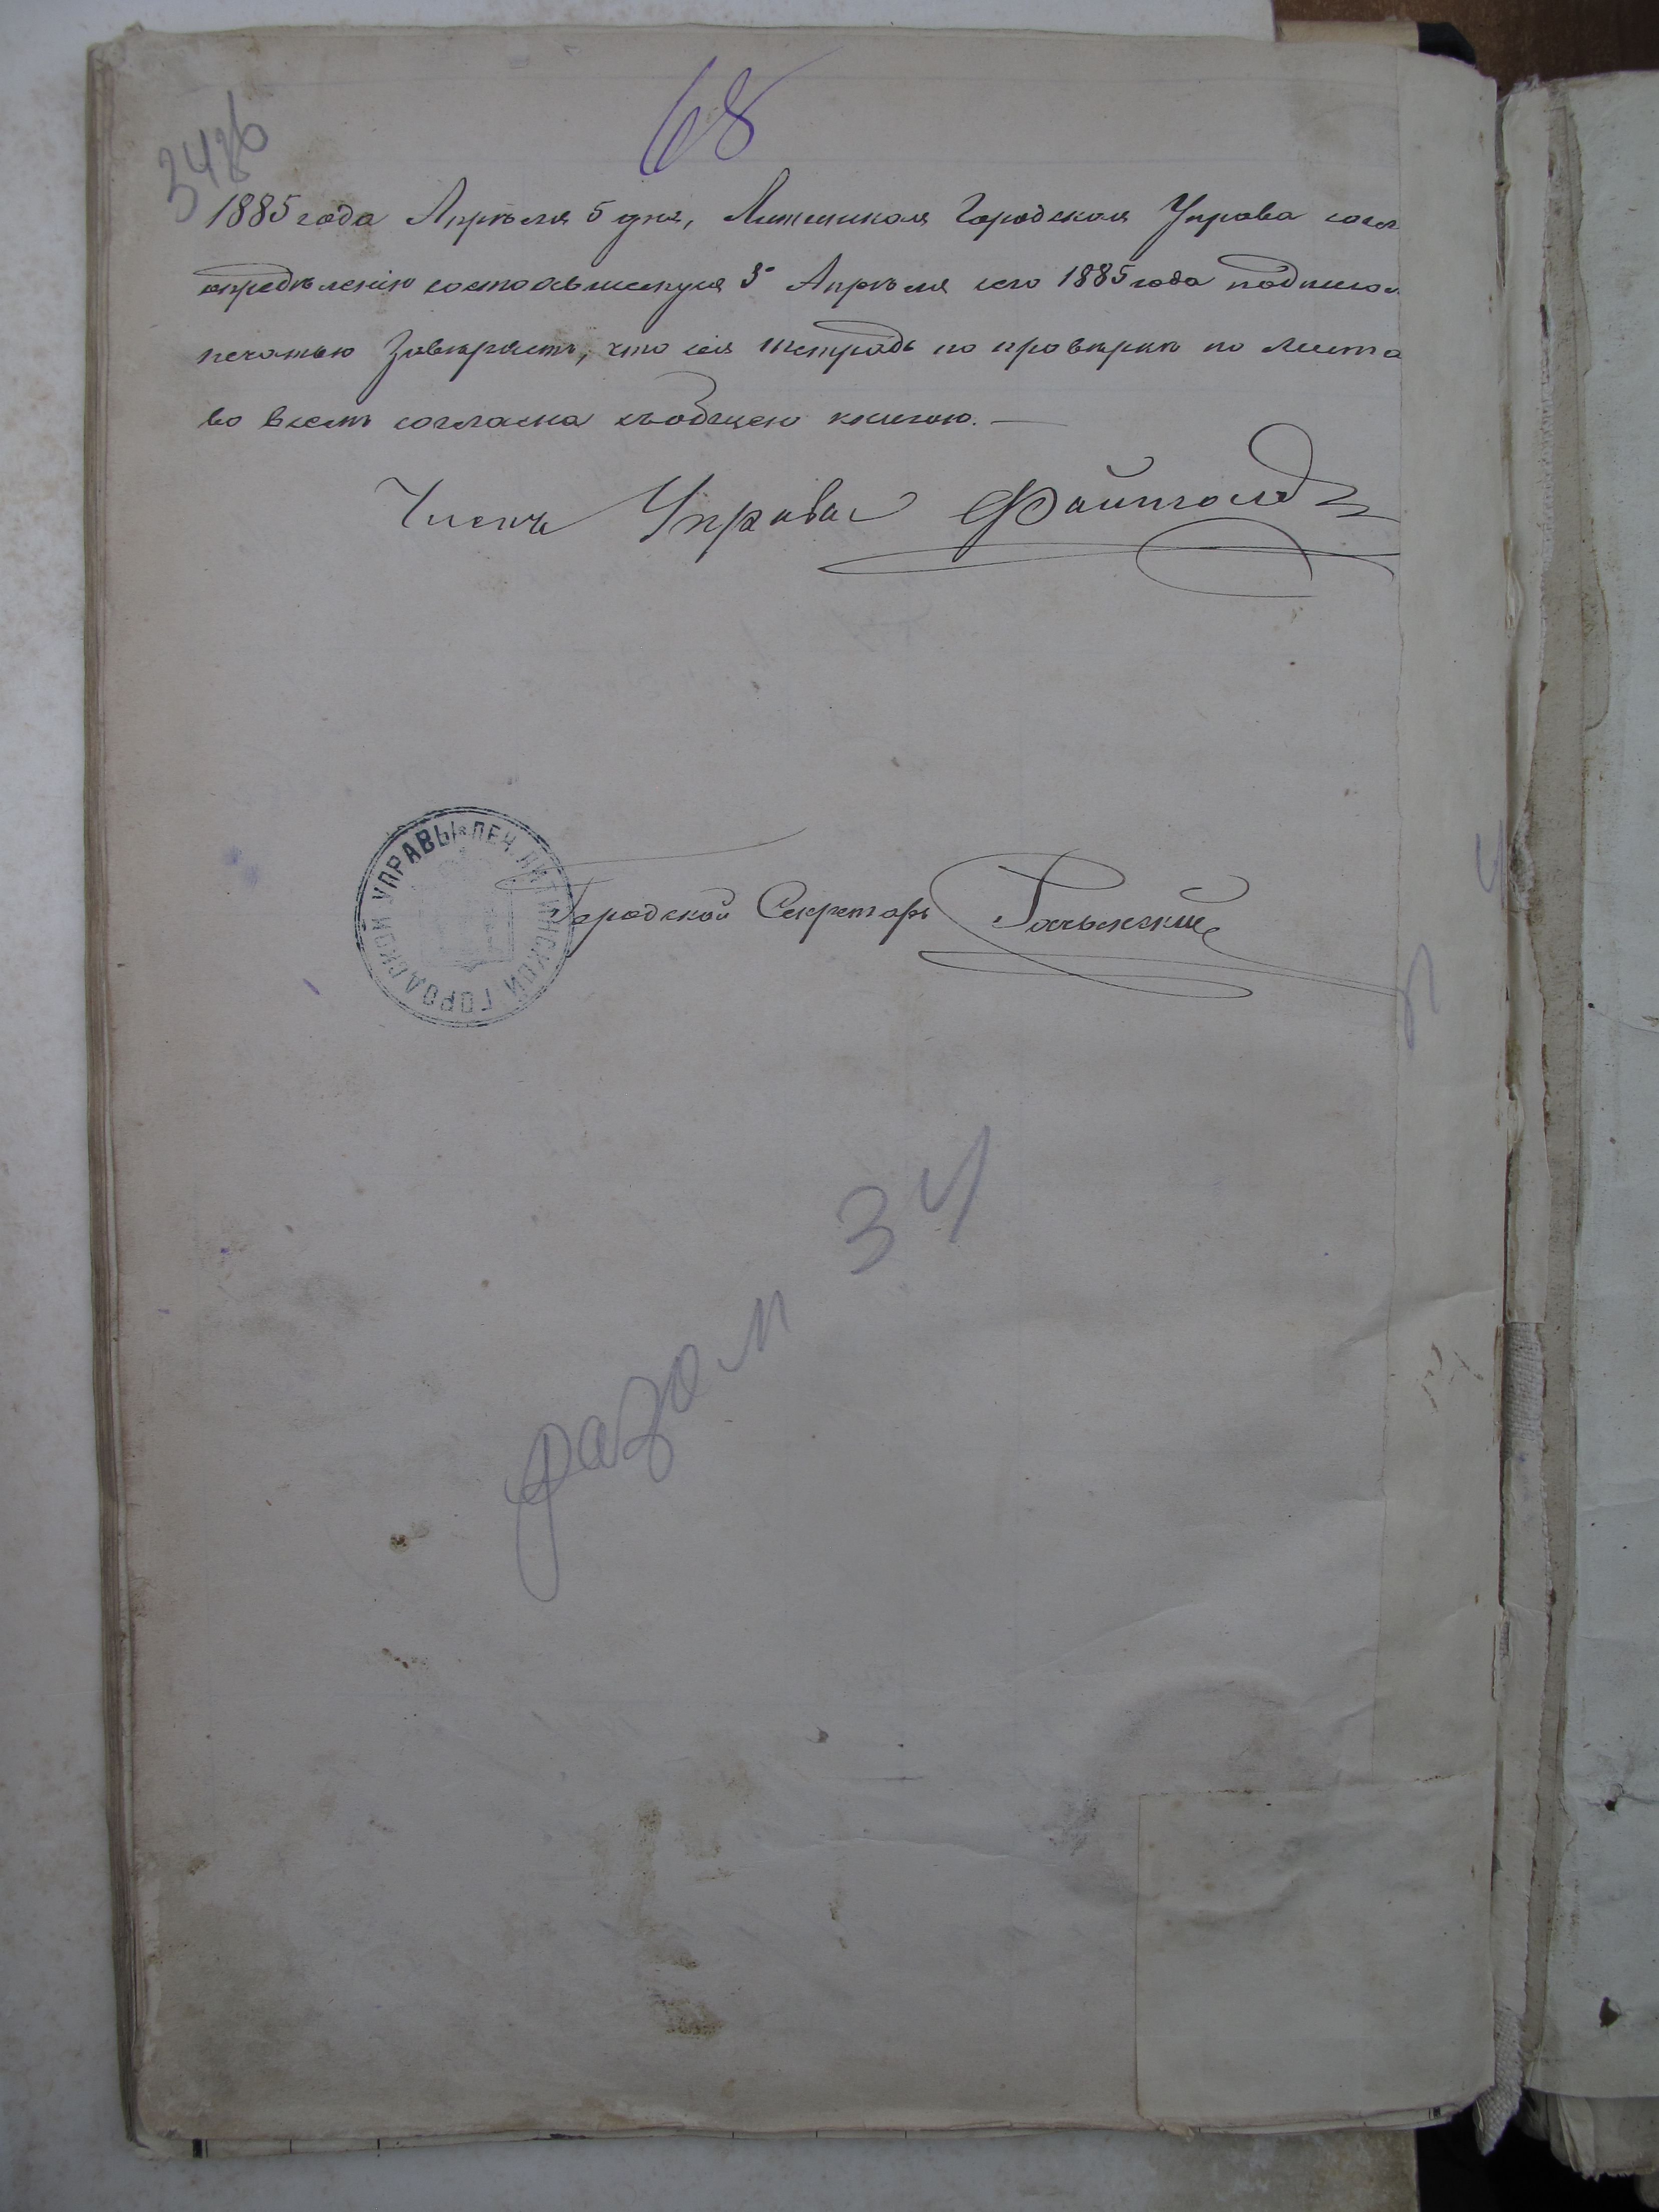 68
3486
1885 года Апрѣля 5 дня, Литинская Городская Управа согл
опредѣленію состоявшемуся 5 Апрѣля сего 1885 года подписом
печатью Завѣряетъ, что сія тетрадь по провѣркѣ по листа
во всемъ согласна съ общею книгою. —
Членъ Управы
ПЕЧ. ЛИТИНСКОЙ ГОРОДСКОЙ УПРАВЫ
Городской Секретарь
разом 34